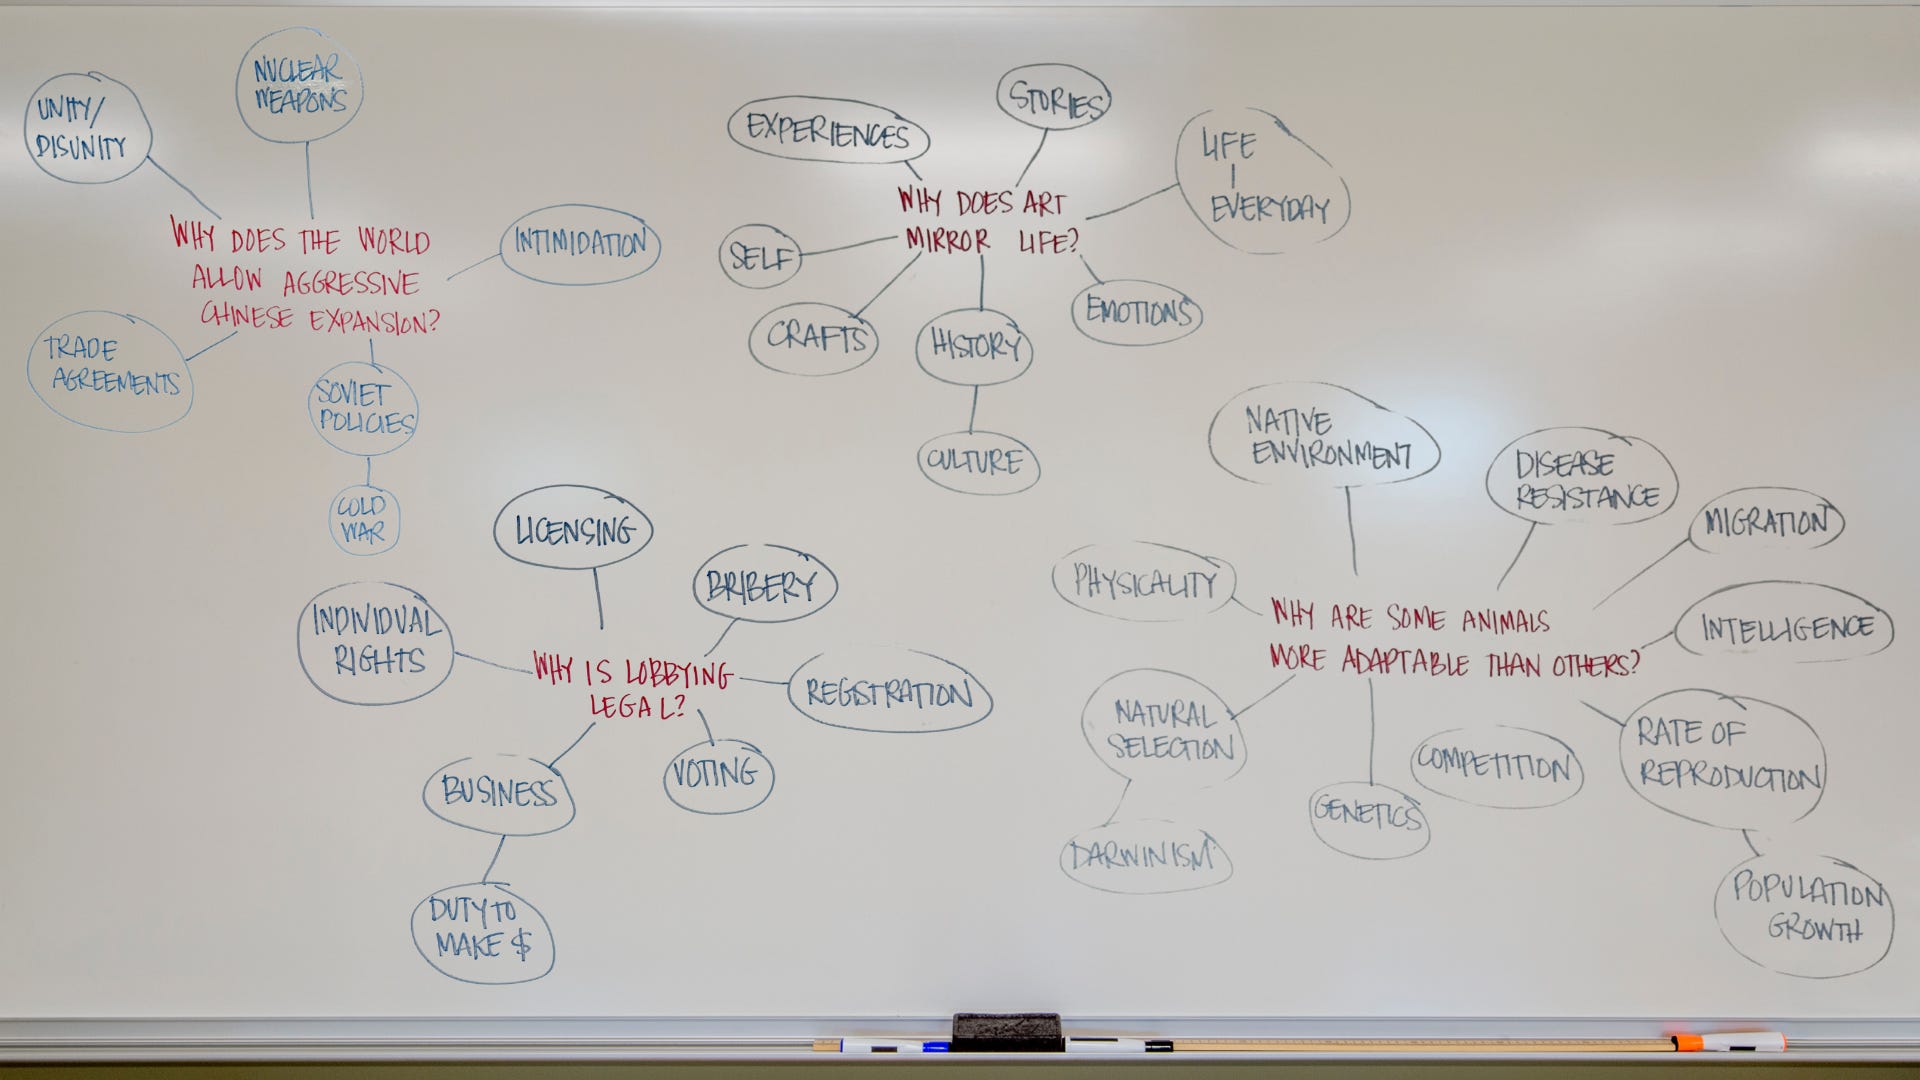 UNITY/
DISUNITY
NUCLEAR
WEAPONS
WHY DOES THE WORLD
ALLOW AGGRESSIVE
CHINESE EXPANSION?
INTIMIDATION
TRADE
AGREEMENTS
SOVIET
POLICIES
COLD
WAR
EXPERIENCES
STORIES
LIFE
EVERYDAY
WHY DOES ART
MIRROR LIFE?
SELF
CRAFTS
HISTORY
EMOTIONS
CULTURE
LICENSING
BRIBERY
INDIVIDUAL
RIGHTS
WHY IS LOBBYING
LEGAL?
REGISTRATION
BUSINESS
VOTING
DUTY TO
MAKE $
NATIVE
ENVIRONMENT
DISEASE
RESISTANCE
MIGRATION
PHYSICALITY
WHY ARE SOME ANIMALS
MORE ADAPTABLE THAN OTHERS?
INTELLIGENCE
NATURAL
SELECTION
COMPETITION
RATE OF
REPRODUCTION
GENETICS
DARWINISM
POPULATION
GROWTH